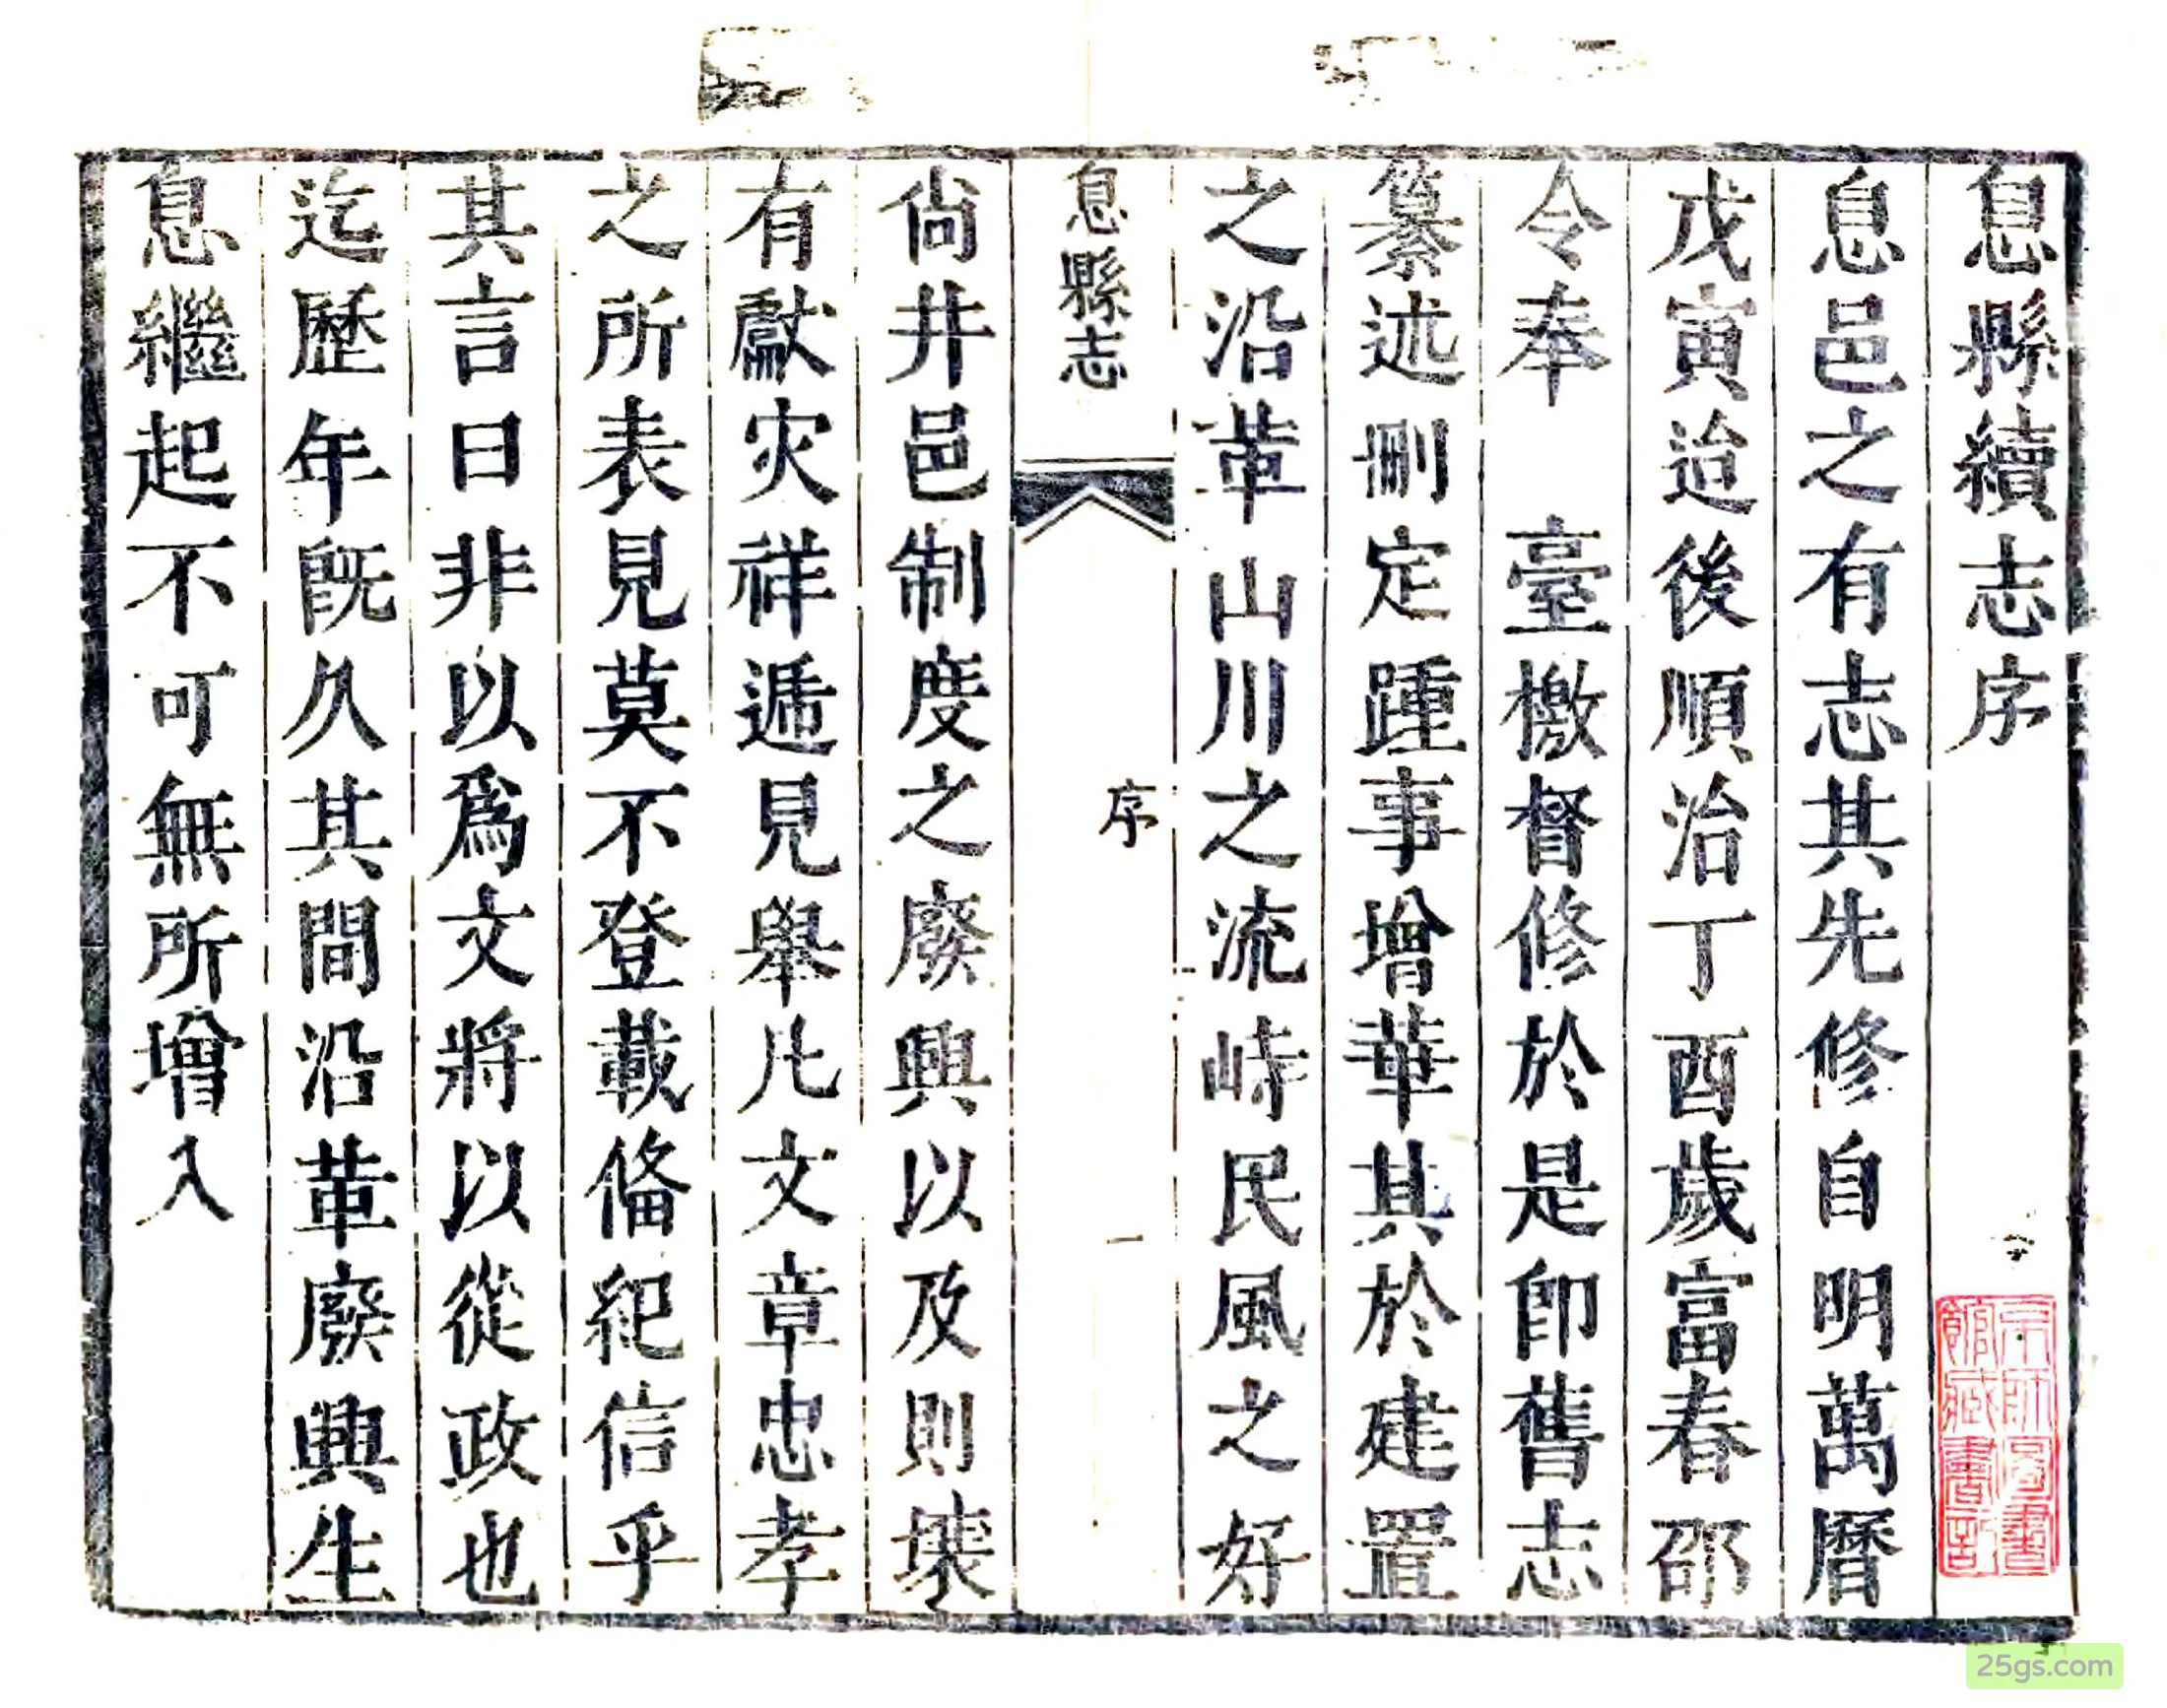 息縣續志序
息邑之有志其先修自明萬曆
戊寅迨後順治丁酉歲富春邵
令奉　臺檄督修於是卽舊志
纂述刪定踵事增華其於建置
之沿革山川之流峙民風之好
息縣志
序
一
尙井邑制度之廢興以及則壤
有獻灾祥遞見舉凡文章忠孝
之所表見莫不登載俻紀信乎
其言曰非以爲文將以從政也
迄歷年旣久其間沿革廢興生
息繼起不可無所增入
25gs.com